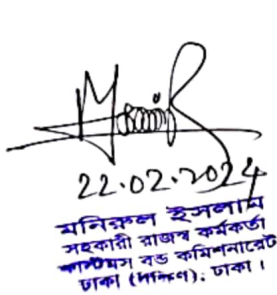 22.02.2024
মনিরুল ইসলাম
সহকারী রাজস্ব কর্মকর্তা
কাস্টমস বন্ড কমিশনারেট
ঢাকা (দক্ষিণ), ঢাকা।